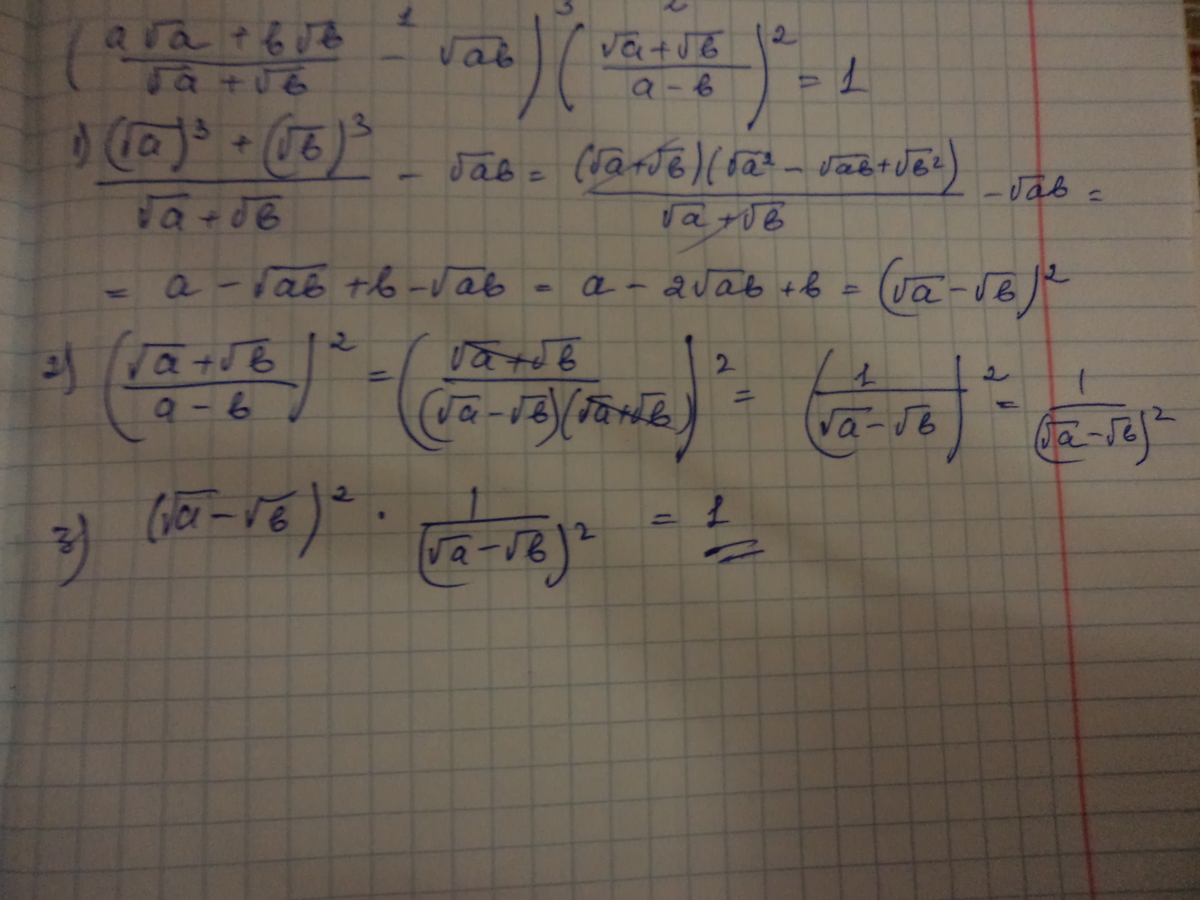 ( (a√a + b√b)/(√a + √b) - √ab ) ( (√a + √b)/(a - b) )² = 1
1 3 2
1) ((√a)³ + (√b)³)/(√a + √b) - √ab = ((√a + √b)(√a² - √ab + √b²))/(√a + √b) - √ab =
= a - √ab + b - √ab = a - 2√ab + b = (√a - √b)²
2) ( (√a + √b)/(a - b) )² = ( (√a + √b)/((√a - √b)(√a + √b)) )² = ( 1/(√a - √b) )² = 1/(√a - √b)²
3) (√a - √b)² · 1/(√a - √b)² = 1